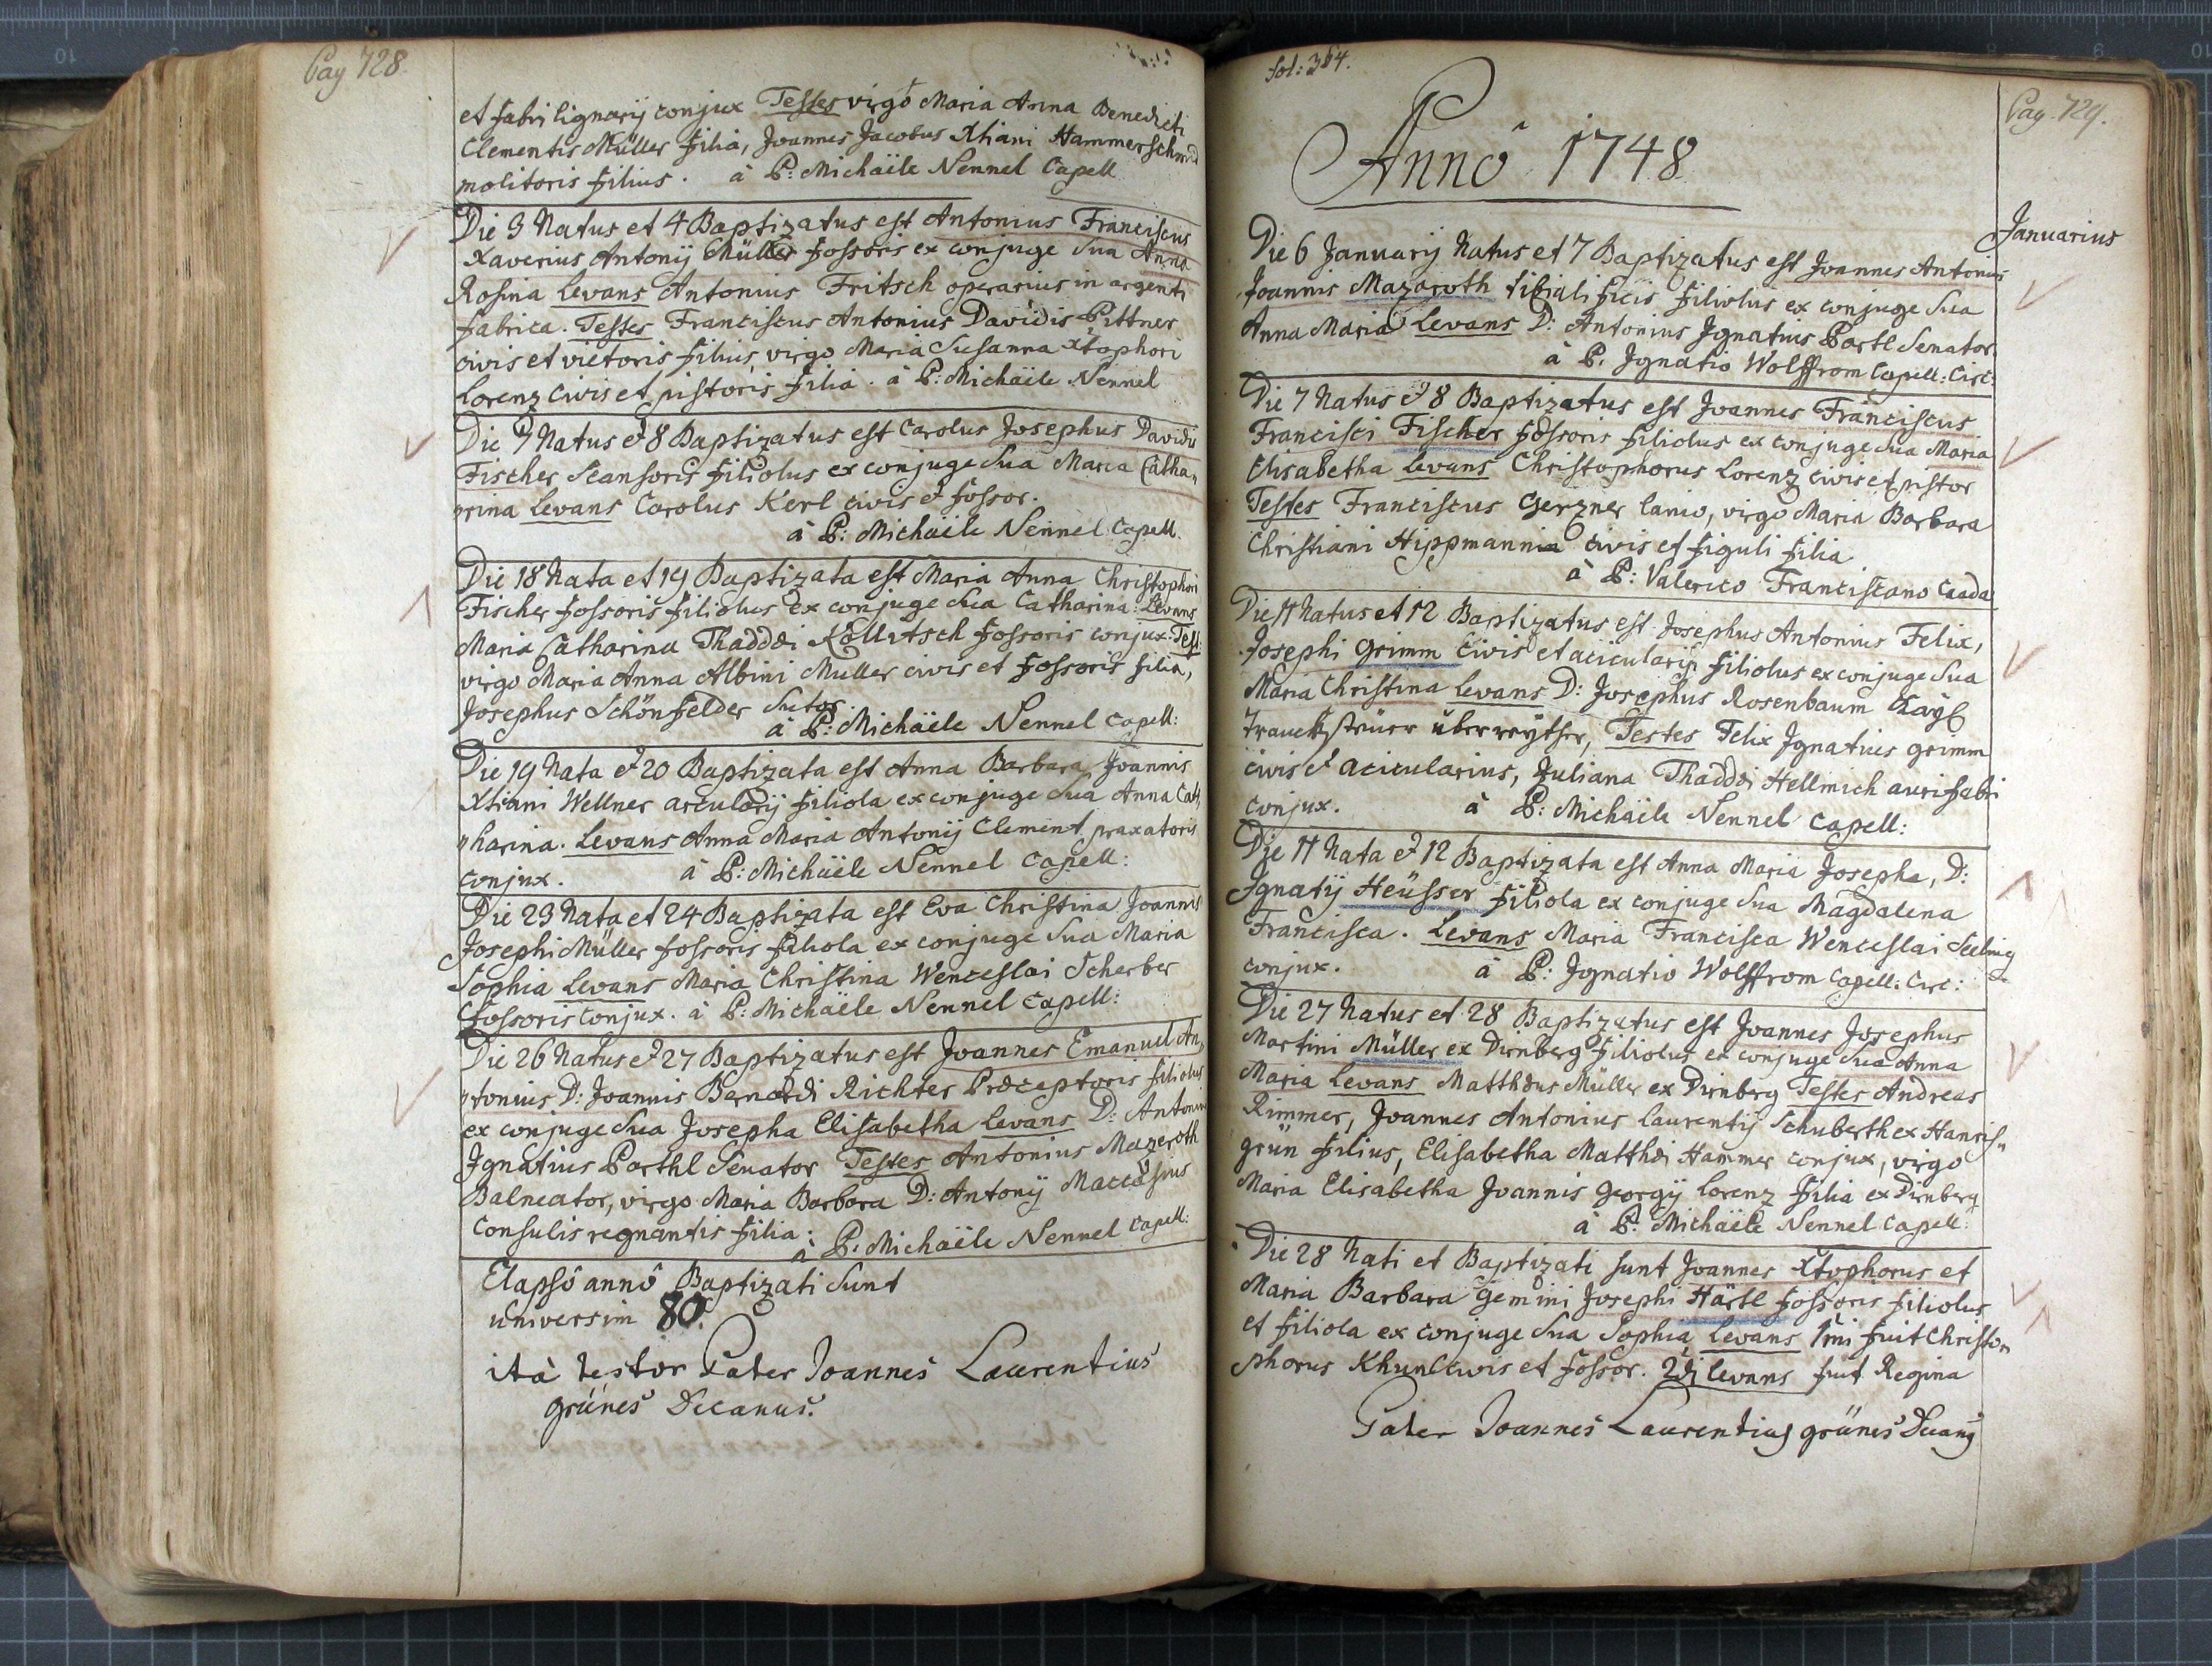 Pag 728.
et fabri lignarij conjux Testes virgo Maria Anna Benedicti
Clementis Müller filia, Joannes Jacobus Xtiani Hammerschmid
molitoris filius. à P: Michaële Nennel Capell
Die 3 Natus et 4 Baptizatus est Antonius Franciscus
Xaverius Antonij Müller fossoris ex conjuge sua Anna
Rosina Levans Antonius Fritsch operarius in argenti
fabrica. Testes Franciscus Antonius Davidis Pittner
civis et victoris filius, virgo Maria Susanna Xtophori
Lorenz civis et pistoris filia. à P: Michaële Nennel
Die 7 Natus et 8 Baptizatus est Carolus Josephus Davidis
Fischer Scansoris filiolus ex conjuge sua Maria Catha„
„rina Levans Carolus Kerl civis et fossor.
à P: Michaële Nennel Capell.
Die 18 Nata et 19 Baptizata est Maria Anna Christophori
Fischer fossoris filiolus ex conjuge sua Catharina: Levans
Maria Catharina Thaddæi Köllitsch fossoris conjux. Test:
virgo Maria Anna Albini Muller civis et fossoris filia,
Josephus Schönfelder Sutor.
à P: Michäele Nennel Capell:
Die 19 Nata et 20 Baptizata est Anna Barbara Joannis
Xtiani Wellner arcularij filiola ex conjuge sua Anna Cat„
„harina. Levans Anna Maria Antonij Clement praxatoris
conjux. à P: Michaële Nennel Capell:
Die 23 Nata et 24 Baptizata est Eva Christina Joannis
Josephi Müller fossoris filiola ex conjuge sua Maria
Sophia Levans Maria Christina Wenceslai Scherber
fossoris conjux. à P: Michaële Nennel Capell:
Die 26 Natus et 27 Baptizatus est Joannes Emanuel An„
„tonius D: Joannis Bernardi Richter Præceptoris filiolus
ex conjuge sua Josepha Elisabetha Levans D: Antonius
Ignatius Parthl Senator Testes Antonius Mazeroth
Balneator, virgo Maria Barbara D: Antonij
Consulis regnantis filia: à P: Michaële Nennel Capell:
Elapsô annô Baptizati Sunt
universim 80.
ità testor Pater Joannes Laurentius
grünes Decanus.
fol: 364.
Pag. 729.
Annô 1748
Januarius
Die 6 Januarij Natus et 7 Baptizatus est Joannes Antonius
Joannis Mazaroth tibialificis filiolus ex conjuge sua
Anna Maria Levans D: Antonius Ignatius Partl Senator.
à P. Ignatio Wolffrom Capell: Cist:
Die 7 Natus et 8 Baptizatus est Joannes Franciscus
Francisci Fischer fossoris filiolus ex conjuge sua Maria
Elisabetha Levans Christophorus Lorenz civis et pistor
Testes Franciscus Gerzner lanio, virgo Maria Barbara
Christiani Hippmannin civis et figuli filia
à P: Valerico Franciscano Caada
Die 11 Natus et 12 Baptizatus est Josephus Antonius Felix,
Josephi Grimm Civis et acicularij filiolus ex conjuge sua
Maria Christina Levans D: Josephus Rosenbaum Kaÿß
Tranckstüer überreÿther, Testes Felix Ignatius grimm
civis et acicularius, Juliana Thaddæi Hellmich aurifabri
conjux. à P: Michaële Nennel Capell:
Die 11 Nata et 12 Baptizata est Anna Maria Josepha, D:
Ignatij Heüsser filiola ex conjuge sua Magdalena
Francisca. Levans Maria Francisca Wenceslai Seeling
conjux. à P: Ignatio Wolffrom Capell: Cist:
Die 27 Natus et 28 Baptizatus est Joannes Josephus
Martini Müller ex Dirnberg filiolus ex conjuge sua Anna
Maria Levans Matthæus Müller ex Dirnberg Testes Andreas
Rimmer, Joannes Antonius Laurentij Schuberth ex Hanis„
grün filius, Elisabetha Matthæi Hammer conjux, virgo
Maria Elisabetha Joannis Georgij Lorenz filia ex Dirnberg
à P: Michaële Nennel Capell:
Die 28 Nati et Baptizati sunt Joannes Xtophorus et
Maria Barbara gemini Josephi Härtl fossoris filiolus
et filiola ex conjuge sua Sophia, Levans 1mi fuit Christo„
phorus Khunl civis et fossor. 2di levans fuit Regina
Pater Joannes Laurentius grünes Decanus